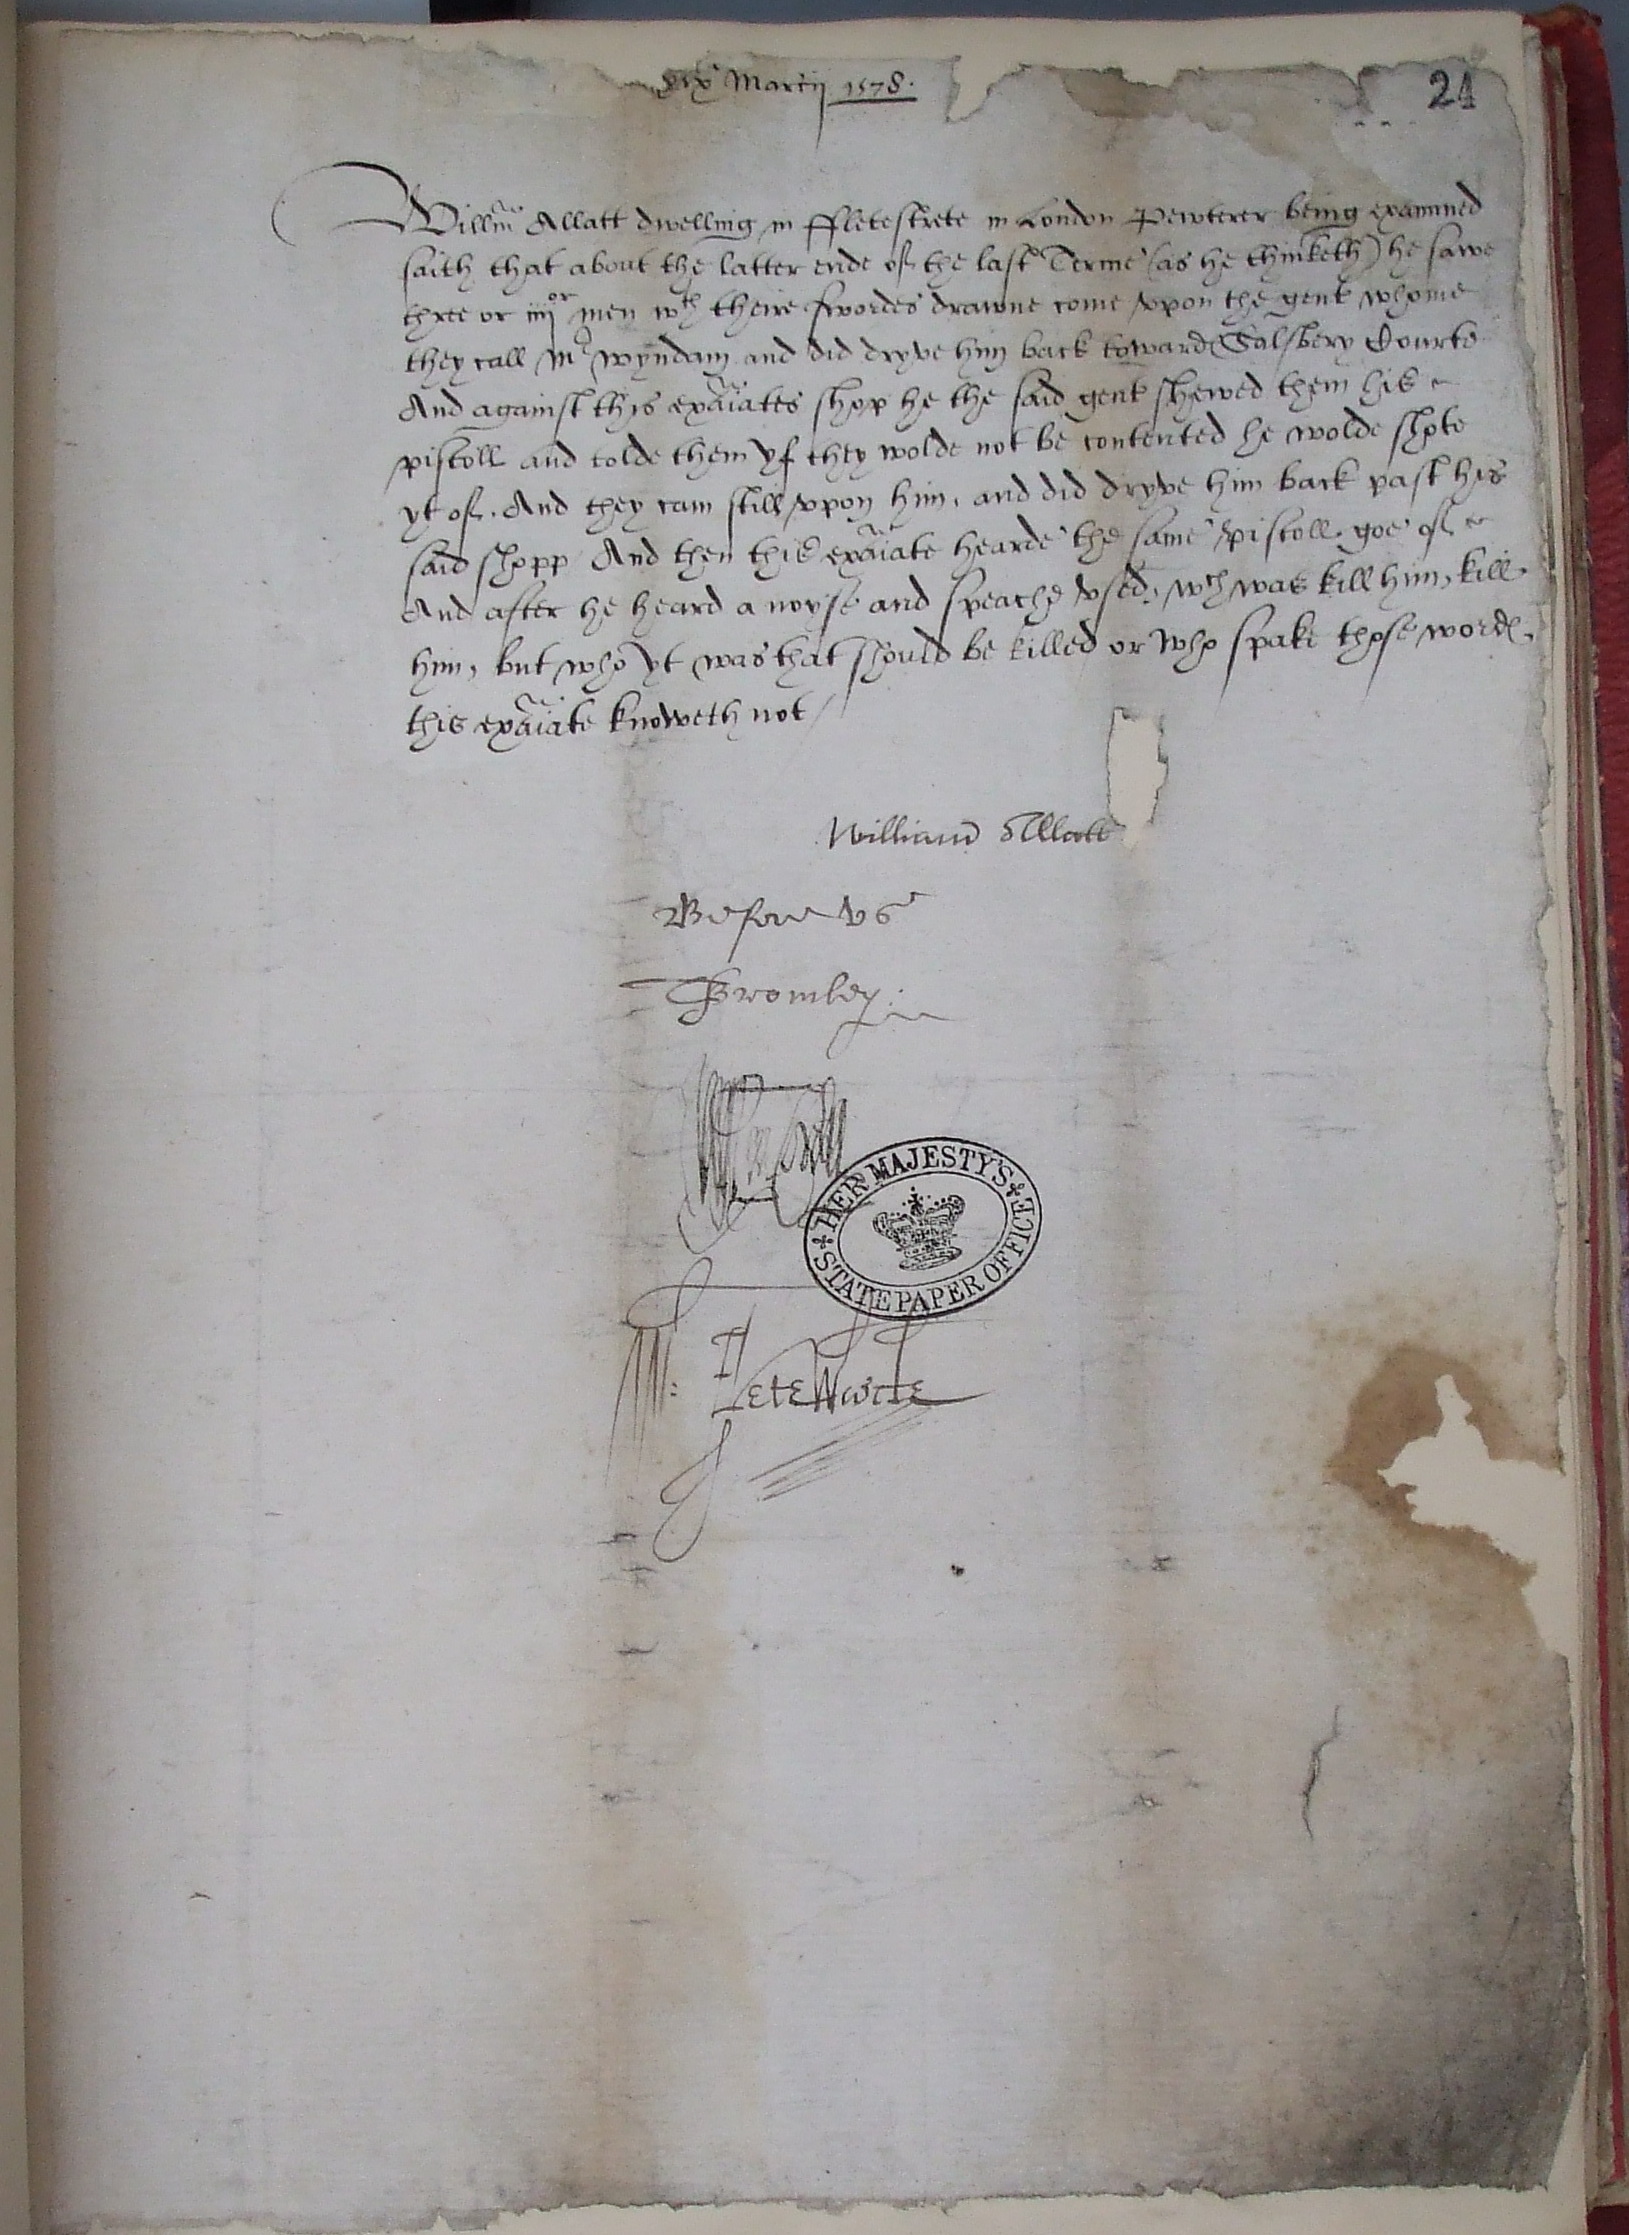 xix Martij 1578.
24
Willm Allatt dwelling in ffletestrete in London Pewterer being examined
saith that about the latter ende of the last Terme (as he thinketh) he sawe
three or iiijor men wth theire swordes drawne come vpon the gent whome
they call Mr Wyndam and did dryve him back toward Salsbery Courte
And against this exaiates shop he the said gent shewed them his
pistoll and tolde them yf they wolde not be contented he wolde shote
yt of. And they cam still vpon him, and did dryve him back past his
said shopp And then this exaiate hearde the same pistoll goe of
And after he heard a noyse and speache vsed, wch was kill him, kill
him, but who yt was that should be killed or who spake those wordes,
this exaiate knoweth not /
William Allatt
Before vs
Bromley.
HER MAJESTY'S STATE PAPER OFFICE